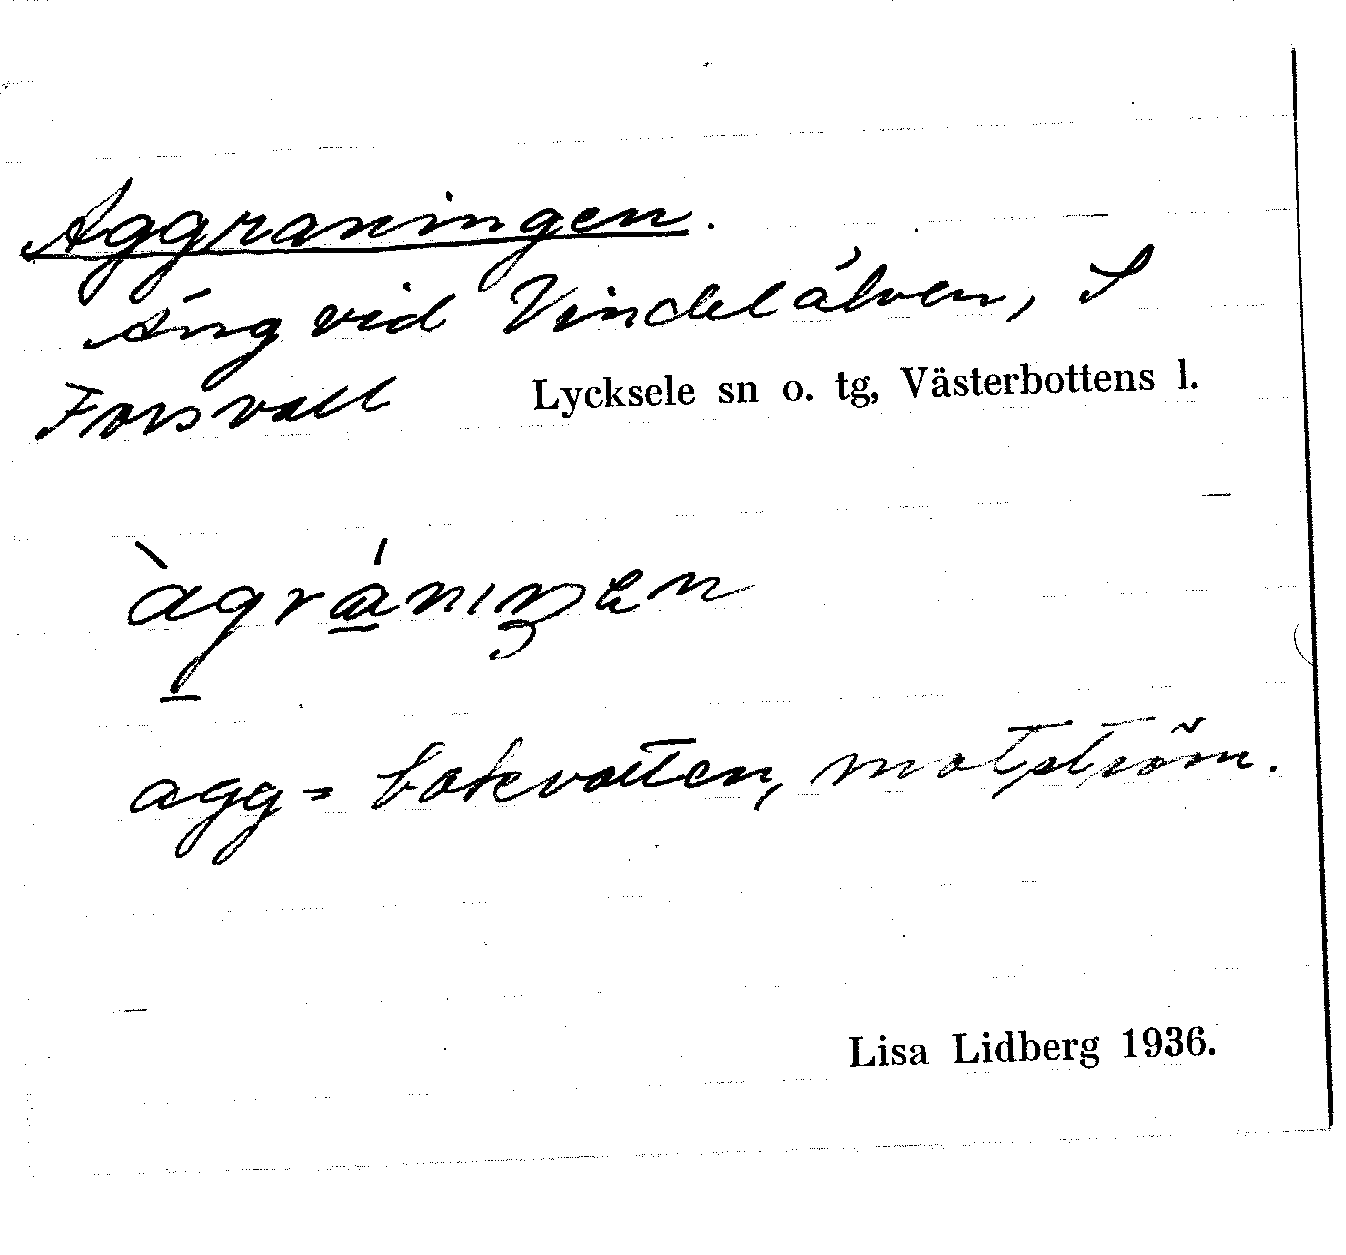 Aggraningen.
Äng vid Vindelälven, S
Forsvall
Lycksele sn o. tg, Västerbottens l.
àgránıŋen
agg = bakvatten, motström.
Lisa Lidberg 1936.